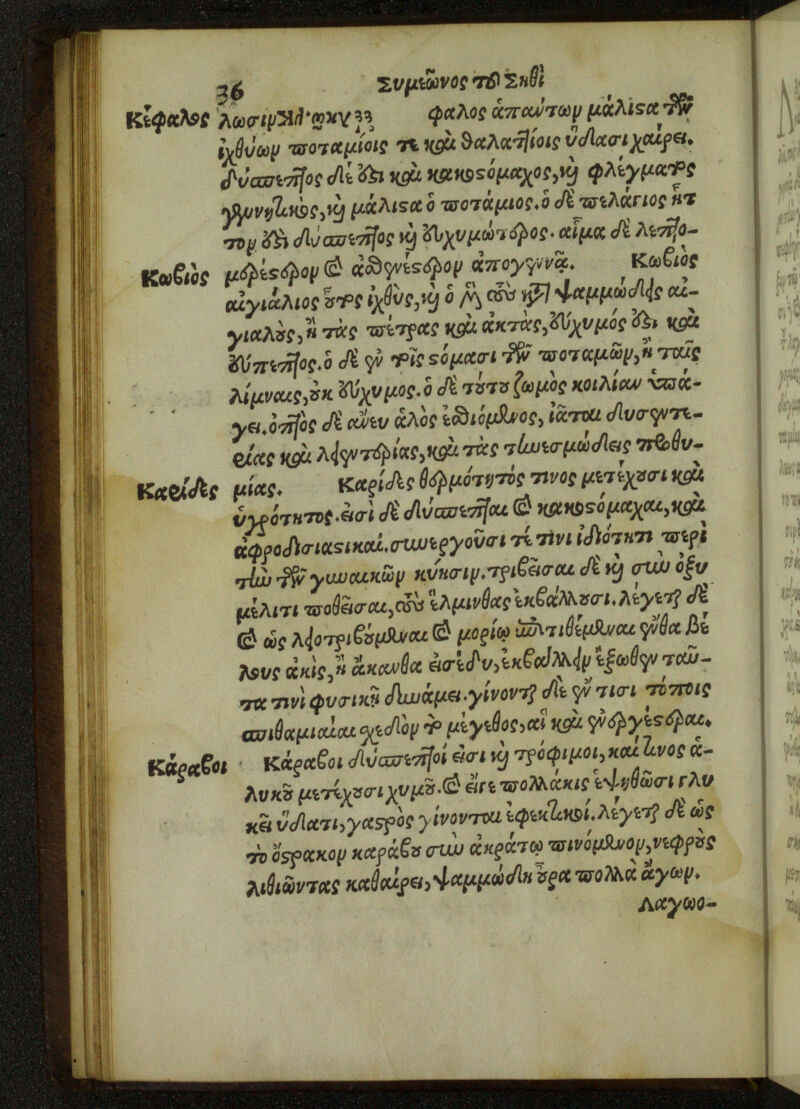 36 Συμεῶνος τοῦ Σηθὶ
Κέφαλος φαλος ἁπάντων μάλιστα τῶν
ἰχθύων ποταμίοις τε καὶ θαλαττίοις ὕδασι χαίρει.
δύσπεπτος δέ ἐστι καὶ κακοστόμαχος, καὶ φλέγματος
γεννητικὸς, καὶ μάλιστα ὁ ποτάμιος. ὁ δὲ πελάγιος ἧτ
τον ἐστὶ δύσπεπτος καὶ εὐχυμώτερος. αἷμα δὲ λεπτό-
Κωβιὸς μερέστερον καὶ ἀσθενέστερον ἀπογεννᾷ. Κωβιὸς
αἰγιάλιος οὗτος ἰχθὺς, καὶ ὁ μὲν οὖν κατὰ ψαμμώδεις αἰ-
γιαλοὺς, ἢ τὰς πέτρας καὶ ἀκτὰς, εὔχυμός ἐστι καὶ
εὔπεπτος. ὁ δὲ ἐν τοῖς στόμασι τῶν ποταμῶν, ἢ ταῖς
λίμναις, οὐκ εὔχυμος. ὁ δὲ τούτου ζωμὸς κοιλίαν ὑπά-
γει. ὀπτὸς δὲ ἄνευ ἁλὸς ἐσθιόμενος, ἰᾶται δυσεντε-
ρίας καὶ λειεντερίας, καὶ τὰς τεινεσμώδεις προθυ-
Καρίδες μίας. Καρίδες θερμότητός τινος μετέχουσι καὶ
ὑγρότητος. εἰσὶ δὲ δύσπεπτοι καὶ κακοστόμαχοι, καὶ
ἀφροδισιαστικαί. συνεργοῦσι τέ τινι ἰδιότητι περὶ
τὴν τῶν γυναικῶν κύησιν. τριβεῖσαι δὲ καὶ σὺν ὀξυ
μέλιτι ποθεῖσαι, οὖν ἕλμινθας ἐκβάλλουσι. λέγεται δὲ
καὶ ὡς λειοτριβούμεναι καὶ μορίῳ ἐπιτιθέμεναι ἔνθα βέ
λους ἀκὶς, ἢ ἄκανθα εἰσέδυ, ἐκβάλλειν ἔξωθεν ταῦ-
τα τινὶ φυσικῇ δυνάμει. γίνονται δὲ ἔν τισι τόποις
σπιθαμιαῖαι σχεδὸν τὸ μέγεθος, αἳ καὶ ἐνεργέστεραι.
Κάραβοι Κάραβοι δύσπεπτοί εἰσι καὶ τρόφιμοι, καί τινος ἁ-
λυκοῦ μετέχουσι χυμοῦ. καὶ εἴγε πολλάκις ἑψηθῶσι γλυ
κεῖ ὕδατι, γαστρὸς γίνονται ἐφεκτικοί. λέγεται δὲ ὡς
τὸ ὄστρακον καράβου σὺν ἀκράτῳ πινόμενον, νεφροὺς
λιθιῶντας καθαίρει, ψαμμώδη οὖρα πολλὰ ἄγων.
Λαγωο-